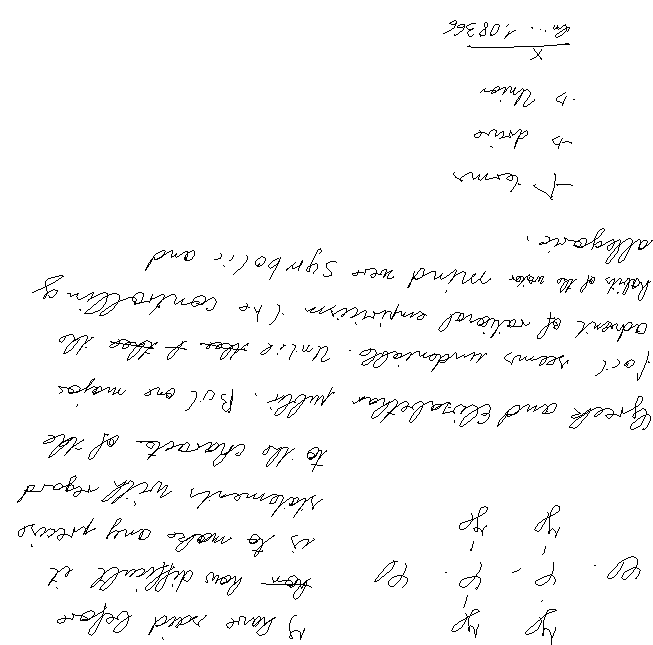 I have said before
how how difficult it
is to make any precise
statements with regard
to the character of the
Greek and Elizabethan public. But one major
fact seems undeniable. Until the the
advent of rational empiricism the controlling
habits of the mind were symbolic and
allegoric.
→ terms
→ drive
→ Union
x
ln ... 1.08366